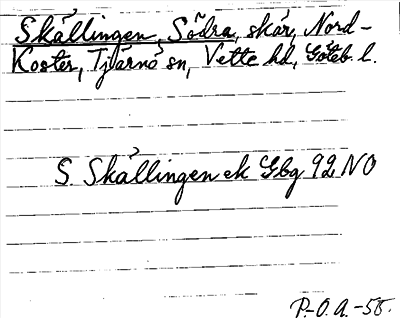 Skällingen, Södra, skär, Nord-
Koster, Tjärnö sn, Vette hd, Göteb l.
S. Skällingen ek Gbg 92 NO
P.-O.A.-55.